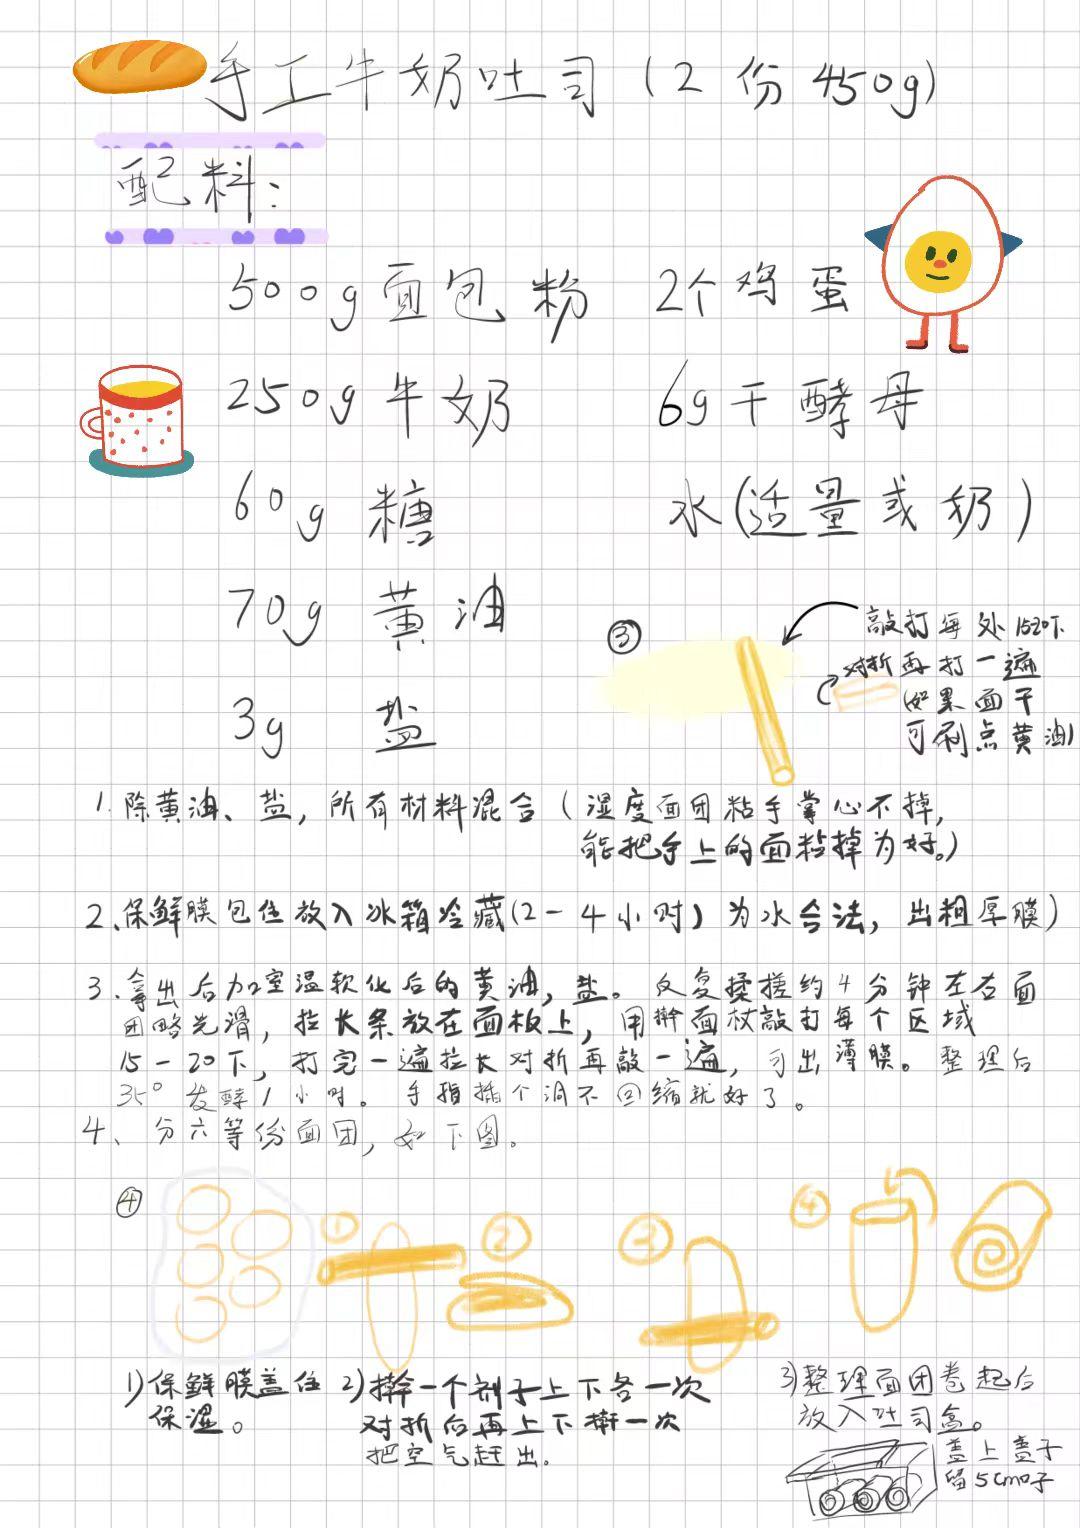 手工牛奶吐司（2 份 450g）
配料：
500g 面包粉 2个鸡蛋
250g 牛奶 6g 干酵母
60g 糖 水(适量或奶)
70g 黄油
3g 盐
③
敲打每处1520下
对折再打一遍
(如果面干
可刷点黄油)
1. 除黄油、盐，所有材料混合（湿度面团粘手掌心不掉，
能把手上的面粘掉为好。）
2、保鲜膜包住放入冰箱冷藏(2-4小时）为水合法，出粗厚膜）
3、拿出后加室温软化后的黄油，盐。 反复揉搓约4分钟左右面
团略光滑，拉长条放在面板上，用擀面杖敲打每个区域
15-20下，打完一遍拉长对折再敲一遍，可出薄膜。整理后
35° 发酵1小时。手指插个洞不回缩就好了。
4、分六等份面团，如下图。
④
① ② ③ ④
1)保鲜膜盖住
保湿。
2)擀一个剂子上下各一次
对折后再上下擀一次
把空气赶出。
3)整理面团卷起后
放入吐司盒。
盖上盖子
留5cm口子